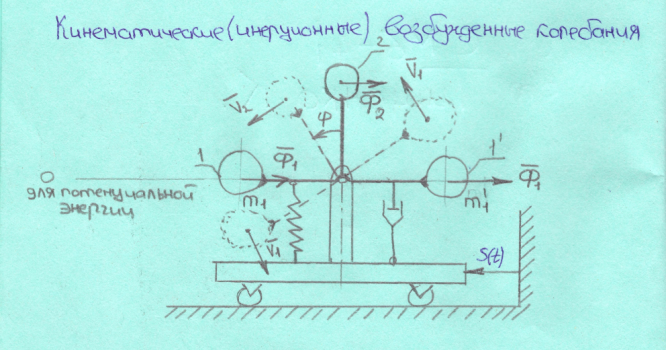 Кинематические (инерционные) возбужденные колебания
2
V̅₁
V̅₂
φ
Φ̅₂
1
Φ̅₁
1'
Φ̅₁
0
для потенциальной
энергии
m₁
m₁'
V̅₁
S(t)